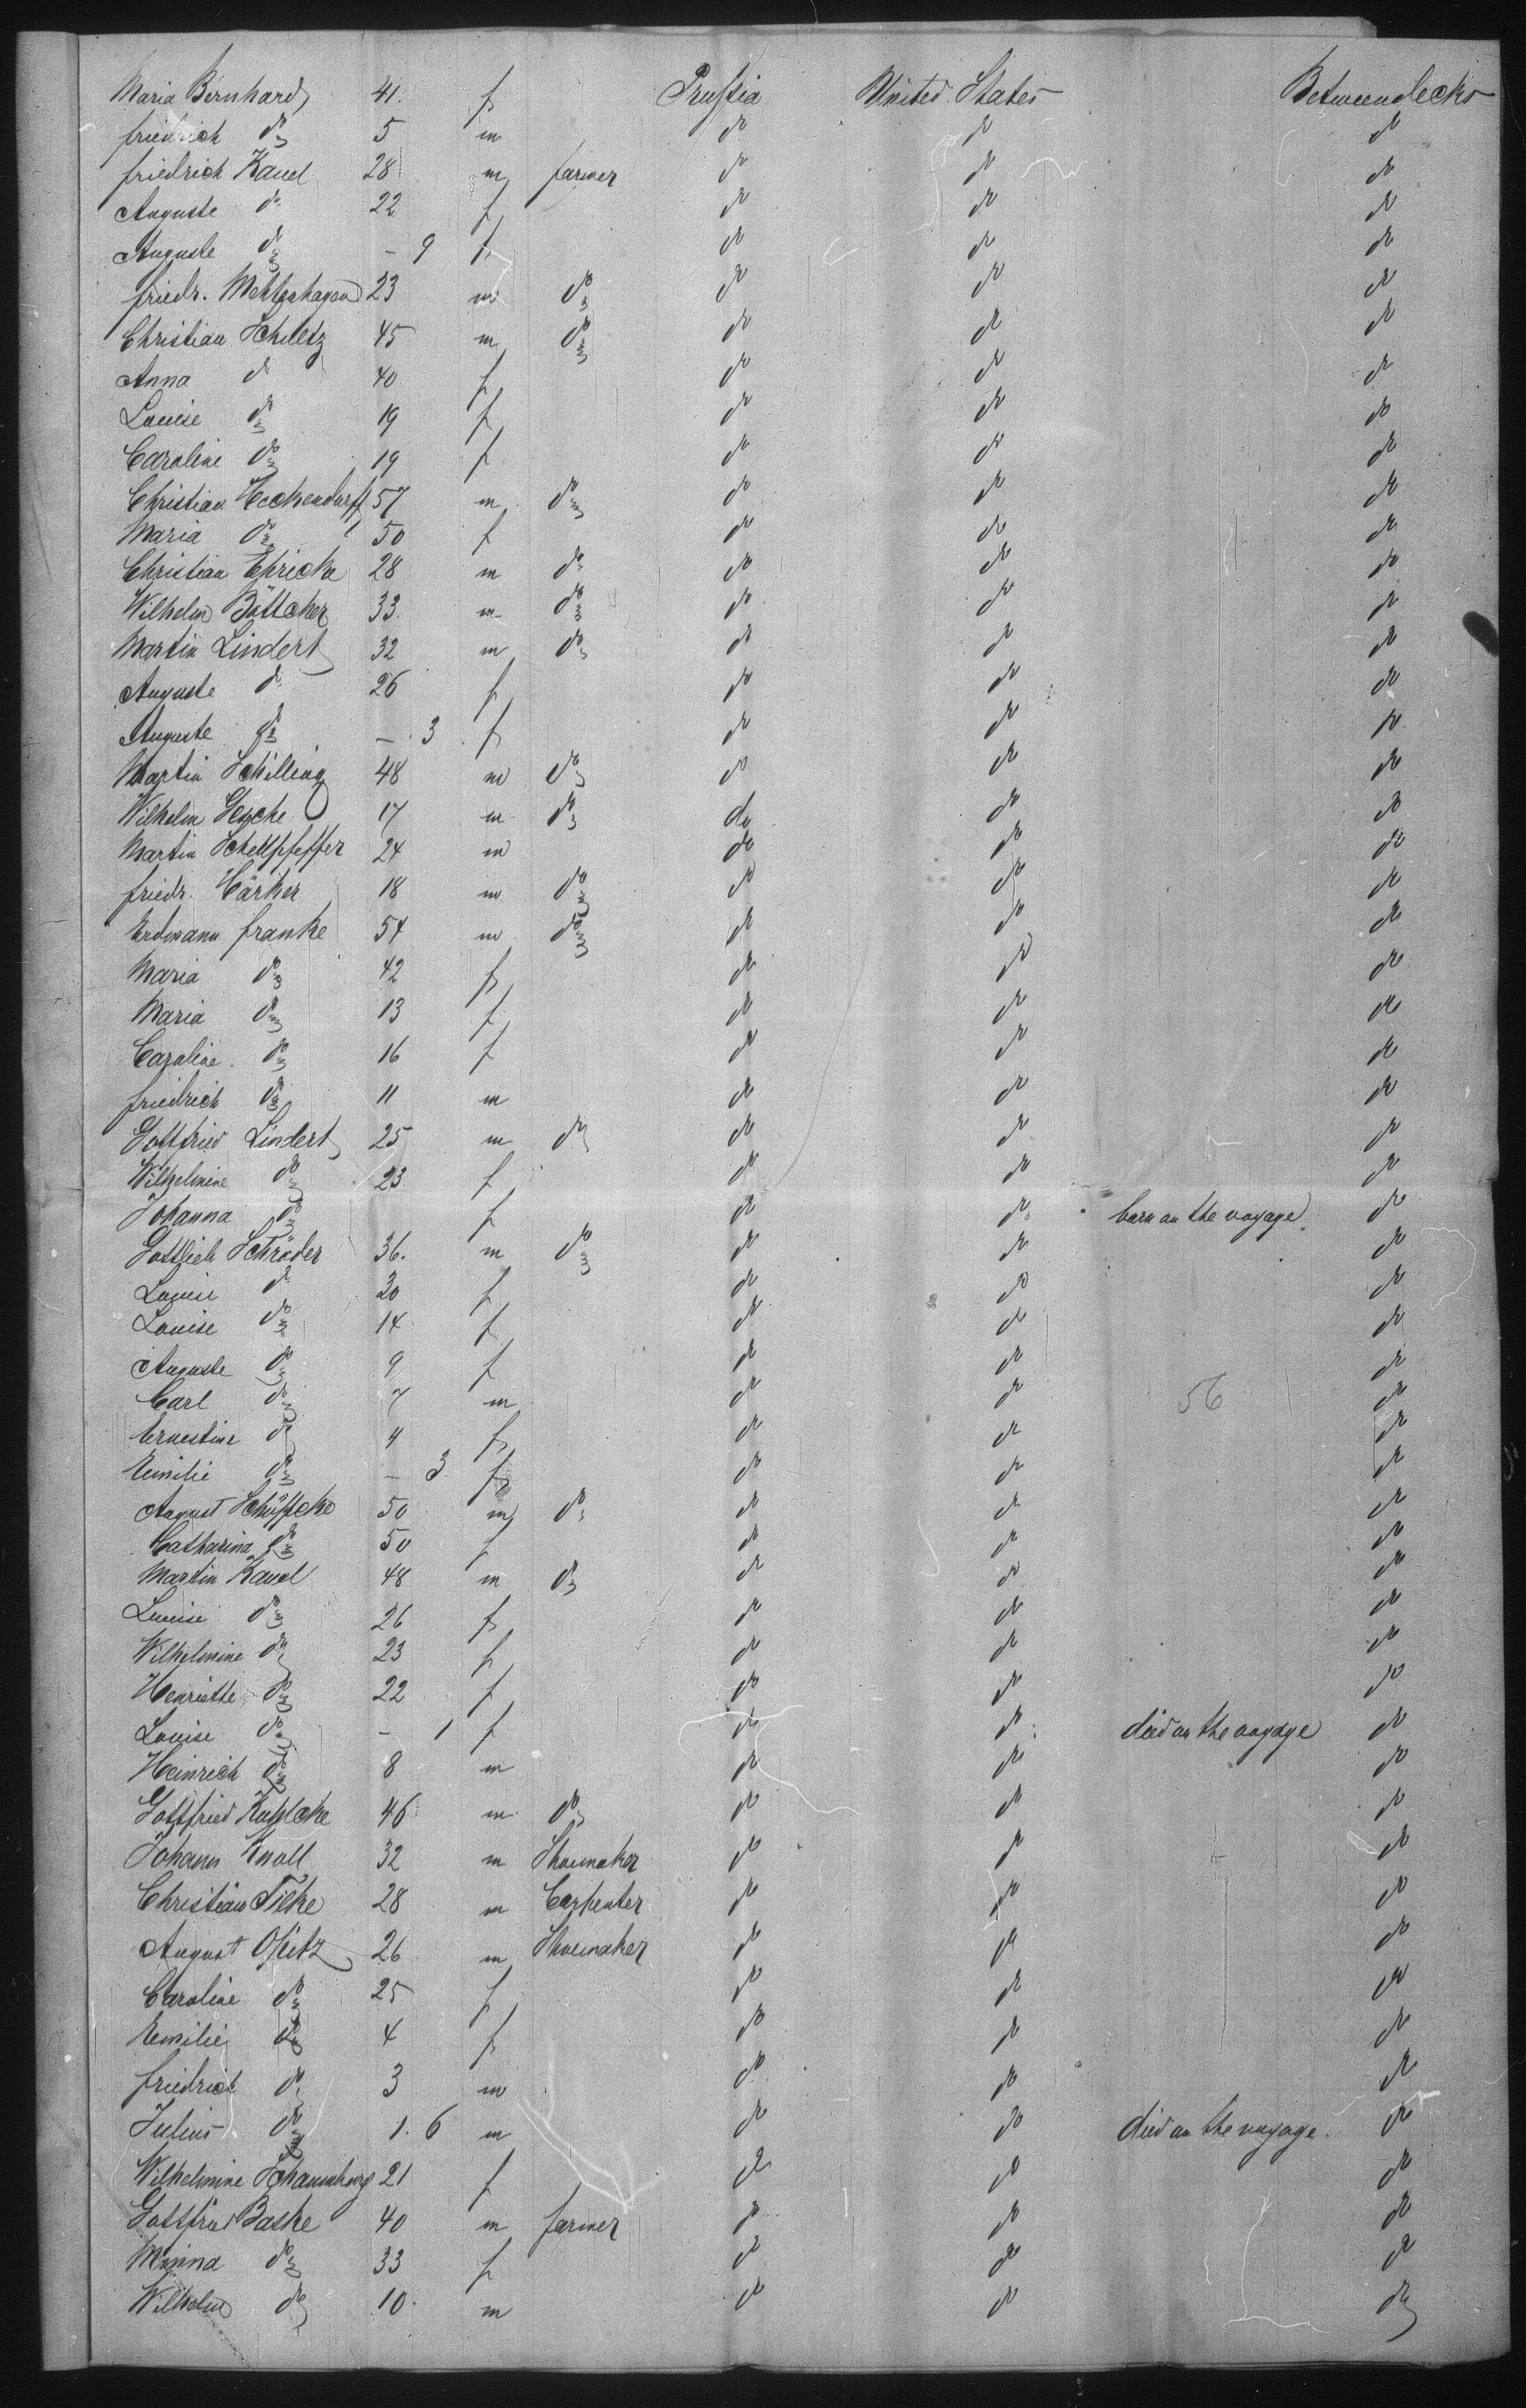 Maria Bernhard 41. f Prussia United States Betweendecks
friedrich do 5 m do do do
friedrich Kauel 28 m farmer do do do
Auguste do 22 f do do do
Auguste do - 9 f do do do
friedr. 23 m do do do do
Christian Schultz 45 m do do do do
Anna do 40 f do do do
Louise do 19 f do do do
Caroline do 19 f do do do
Christian Heckendorff 57 m do do do do
Maria do 50 f do do do
Christian Ehricke 28 m do do do do
Wilhelm Böttcher 33. m do do do do
Martin Lindert 32 m do do do do
Auguste do 26 f do do do
Auguste do - 3 f do do do
Martin Schilling 48 m do do do do
Wilhelm 17 m do do do do
Martin Schellpfeffer 24 m do do do
friedr. Härker 18 m do do do do
Erdmann franke 54 m do do do do
Maria do 42 f do do do
Maria do 13 f do do do
Caroline do 16 f do do do
friedrich do 11 m do do do
Gottfried Lindert 25 m do do do do
Wilhelmine do 23 f do do do
Johanna do f do do born on the voyage do
Gottlieb Schröder 36. m do do do do
Louise do 30 f do do do
Louise do 14 f do do do
Auguste do 9 f do do do
Carl do 7 m do do 56 do
Ernestine do 4 f do do do
Emilie do - 3 f do do do
August 50 m do do do do
Catharina do 50 f do do do
Martin Kauel 48 m do do do do
Louise do 26 f do do do
Wilhelmine do 23 f do do do
Henriette do 22 f do do do
Louise do - 1 f do do died on the voyage do
Heinrich do 8 m do do do
Gottfried 46 m do do do do
Johann Knoll 32 m Shoemaker do do do
Christian Tieke 28 m Carpenter do do do
August Opitz 26 m Shoemaker do do do
Caroline do 25 f do do do
Emilie do 4 f do do do
friedrich do 3 m do do do
Julius do 1. 6 m do do died on the voyage. do
Wilhelmine Schaumburg 21 f do do do
Gottfried Baske 40 m farmer do do do
Minna do 33 f do do do
Wilhelm do 10. m do do do